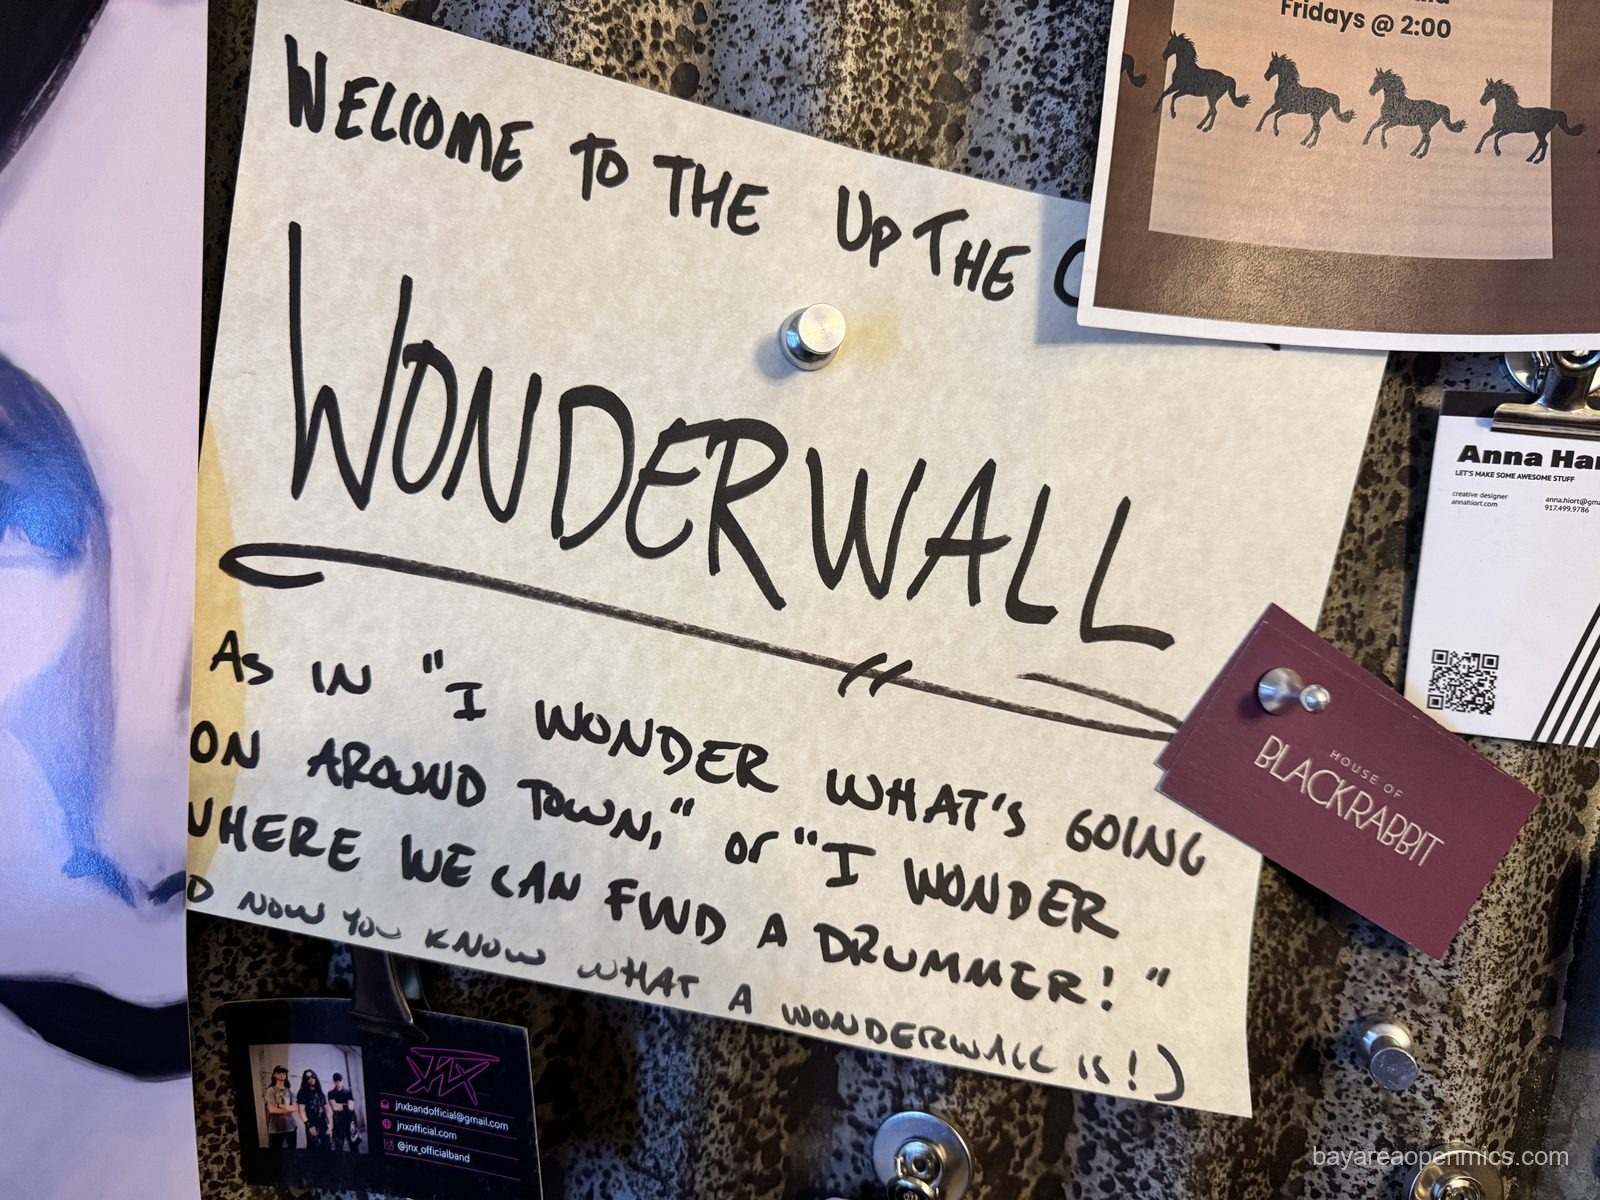 Fridays @ 2:00
WELCOME TO THE UP THE
WONDERWALL
AS IN "I WONDER WHAT'S GOING
ON AROUND TOWN," or "I WONDER
WHERE WE CAN FIND A DRUMMER!"
NOW YOU KNOW WHAT A WONDERWALL IS!)
Anna
LET'S MAKE SOME AWESOME STUFF
creative designer
annahiort.com
anna.hiort@gma
917.499.9786
HOUSE OF
BLACKRABBIT
JNX
jnxbandofficial@gmail.com
jnxofficial.com
@jnx_officialband
bayareaopenmics.com